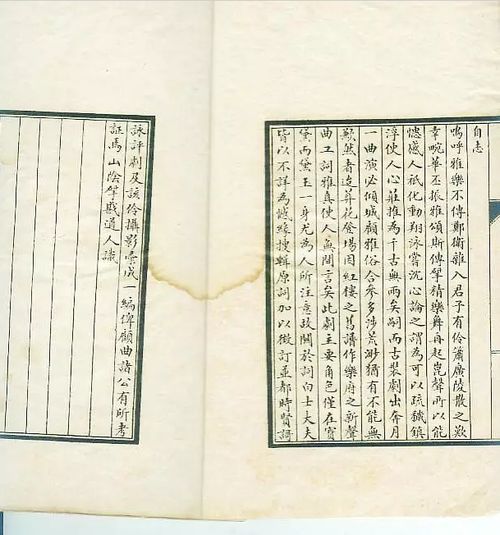 自志
嗚呼雅樂不傳鄭衛雜入君子有伶簫廣陵散之歎
幸畹華丕振雅頌斯傳犖精樂舞再起崑聲所以能
懲儀人祇化動翔詠嘗沈心論之謂為可以疏獩鎮
浮使人心莊推為千古無兩矣嗣而古裝劇出奔月
一曲演必傾城顧雅俗合參多涉荒渺猶有不能無
歉然者迨葬花登場因紅樓之舊譜作樂府之新聲
曲工詞雅真使人無間言矣此劇主要角色僅在寶
黛而黛玉一身尤為人所注意故關於詞句士大夫
皆以不詳為憾緣摟輯原詞加以徵訂並都時賢詞
詠評刺及該伶攝影彙成一編俾顧曲諸公有所考
証焉山陰犖戡道人識